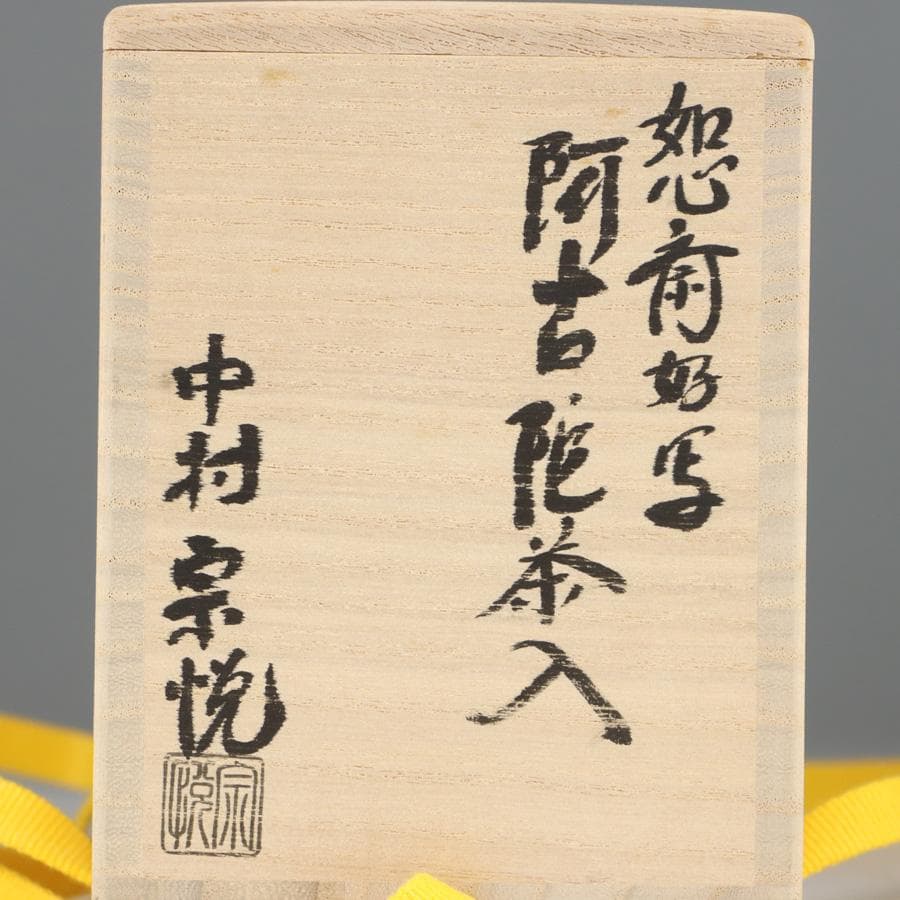 恕斎好写
阿古陀茶入
中村宗悦
宗悦